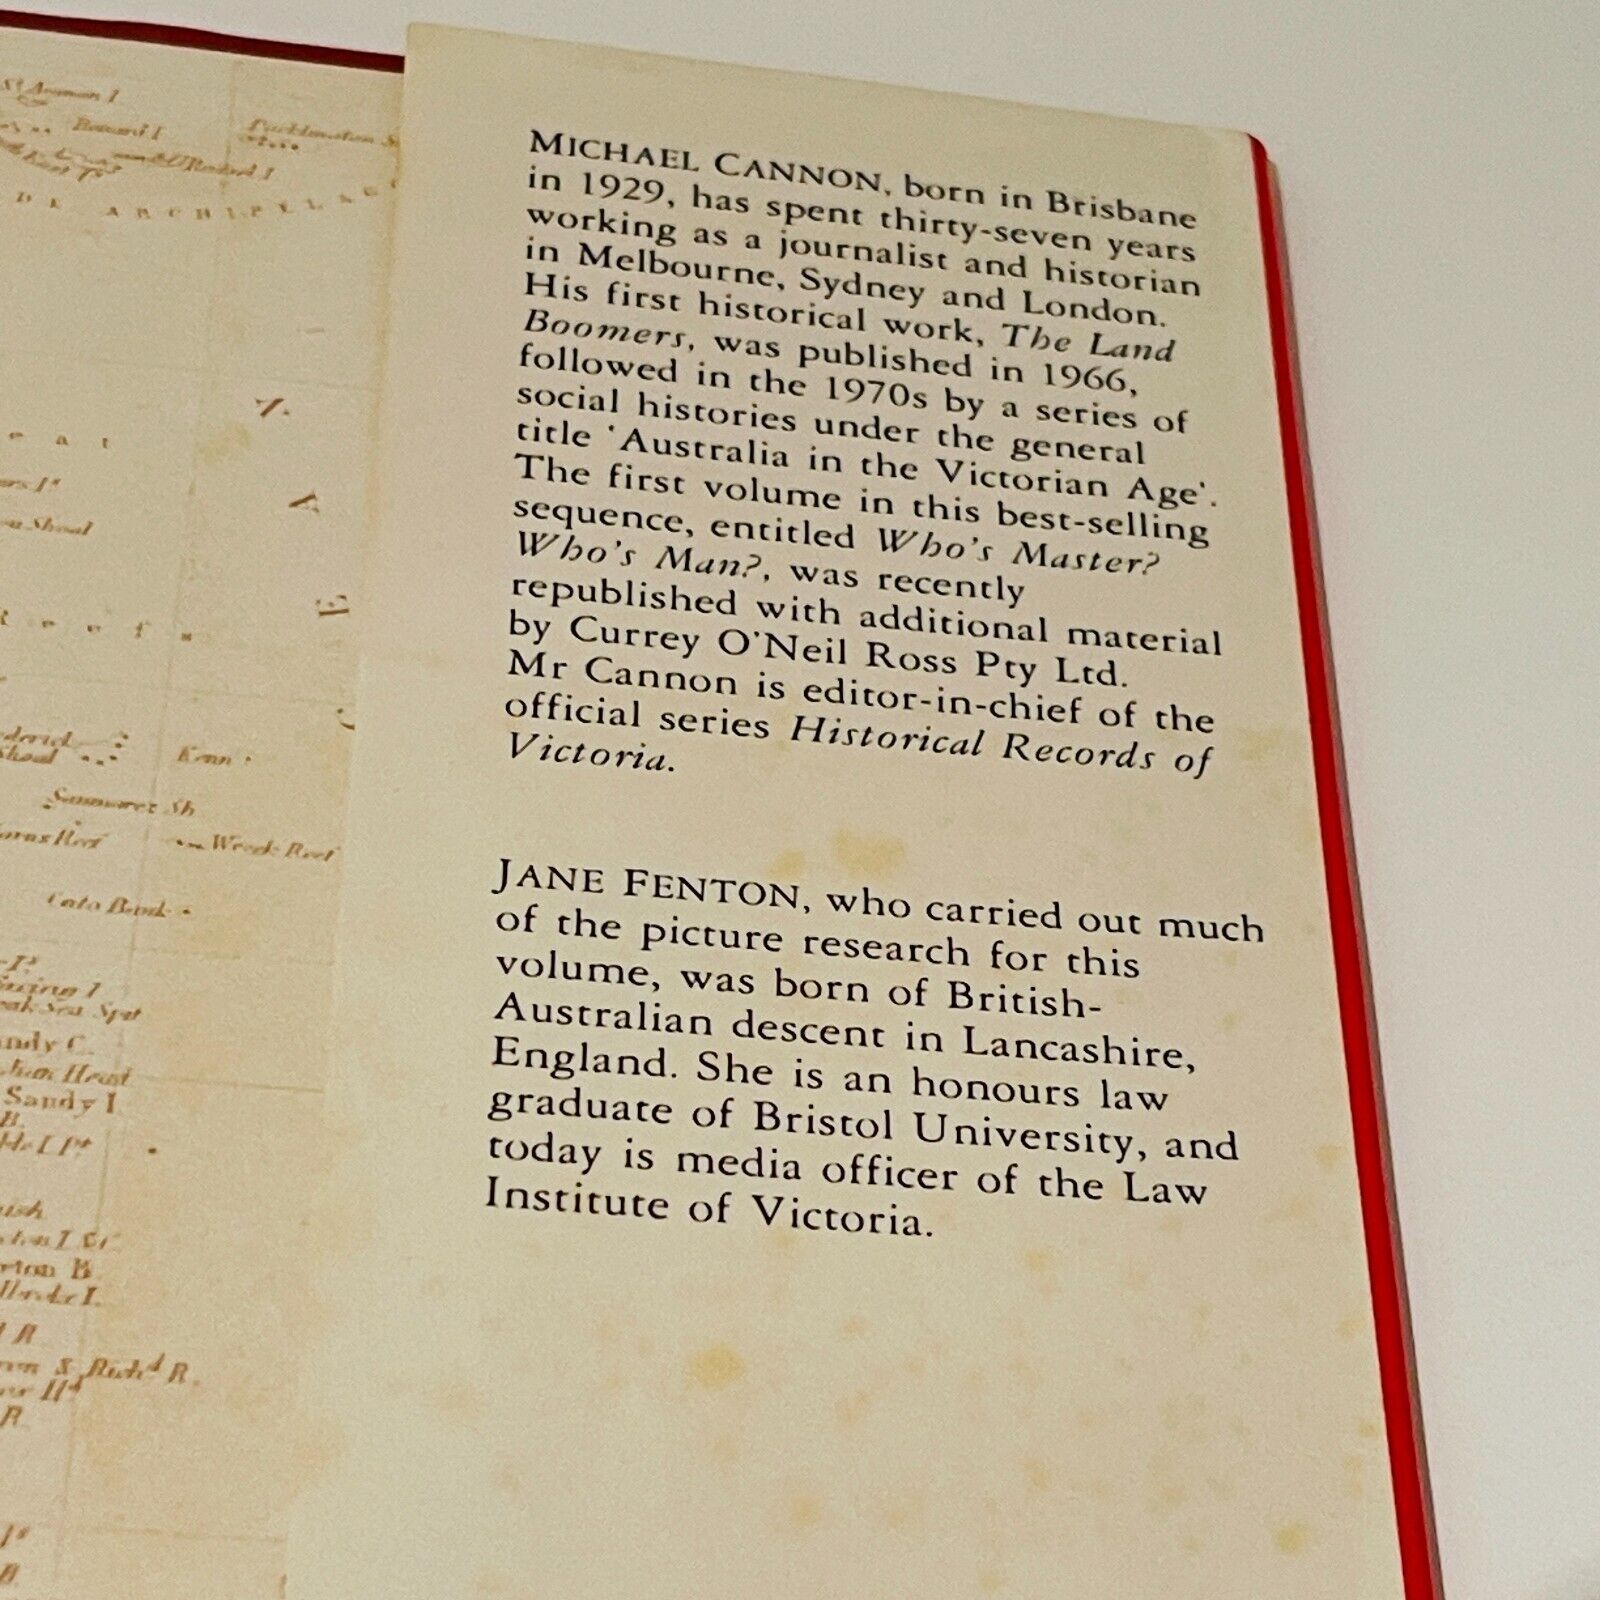 MICHAEL CANNON, born in Brisbane
in 1929, has spent thirty-seven years
working as a journalist and historian
in Melbourne, Sydney and London.
His first historical work, The Land
Boomers, was published in 1966,
followed in the 1970s by a series of
social histories under the general
title 'Australia in the Victorian Age'.
The first volume in this best-selling
sequence, entitled Who's Master?
Who's Man?, was recently
republished with additional material
by Currey O'Neil Ross Pty Ltd.
Mr Cannon is editor-in-chief of the
official series Historical Records of
Victoria.
JANE FENTON, who carried out much
of the picture research for this
volume, was born of British-
Australian descent in Lancashire,
England. She is an honours law
graduate of Bristol University, and
today is media officer of the Law
Institute of Victoria.
DE ARCHIPELAG
Shoal
Reefs
Kenn
Wreck Reef
Cato Bank
Sandy I